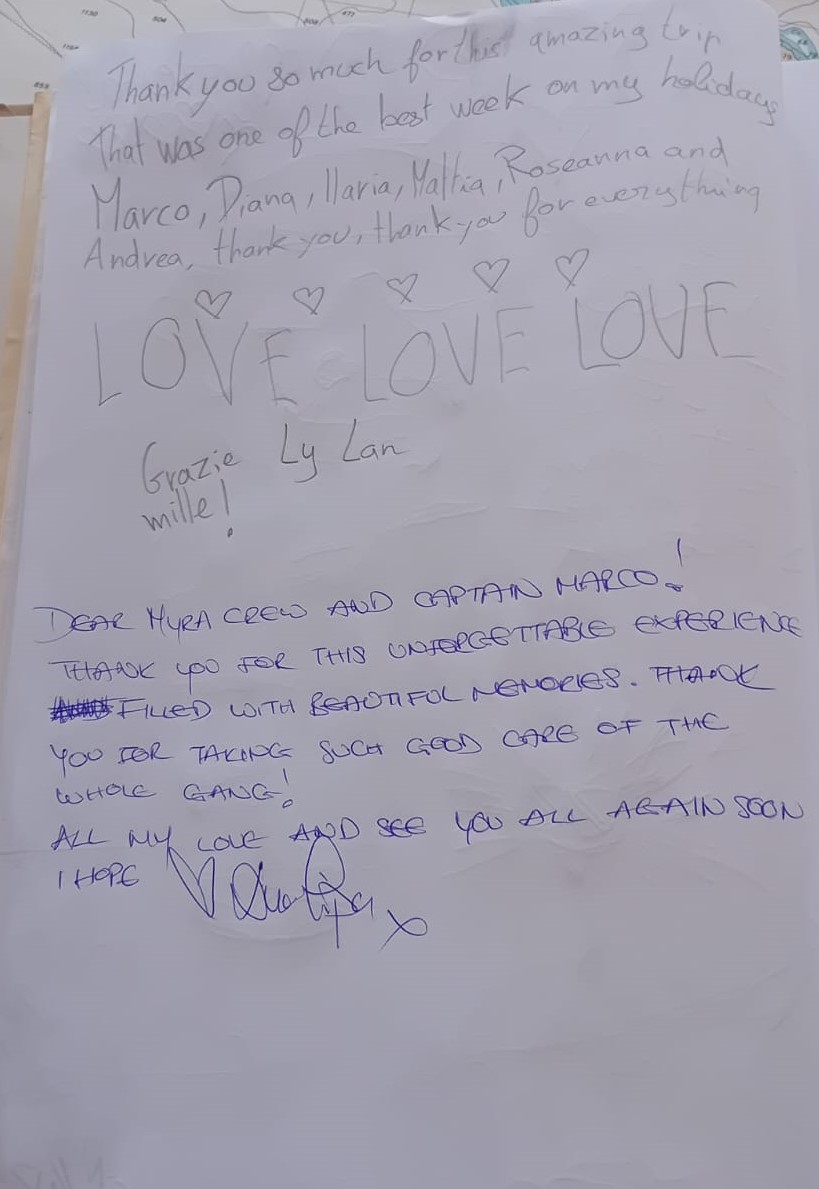 Thank you so much for this amazing trip
That was one of the best week on my holidays
Marco, Diana, Ilaria, Mattia, Roseanna and
Andrea, thank you, thank you for everything
♡ ♡ ♡ ♡ ♡
LOVE LOVE LOVE
Grazie Ly Lan
mille!
DEAR MYRA CREW AND CAPTAIN MARCO!
THANK YOU FOR THIS UNFORGETTABLE EXPERIENCE
FILLED WITH BEAUTIFUL MEMORIES. THANK
YOU FOR TAKING SUCH GOOD CARE OF THE
WHOLE GANG!
ALL MY LOVE AND SEE YOU ALL AGAIN SOON
I HOPE ♡ x